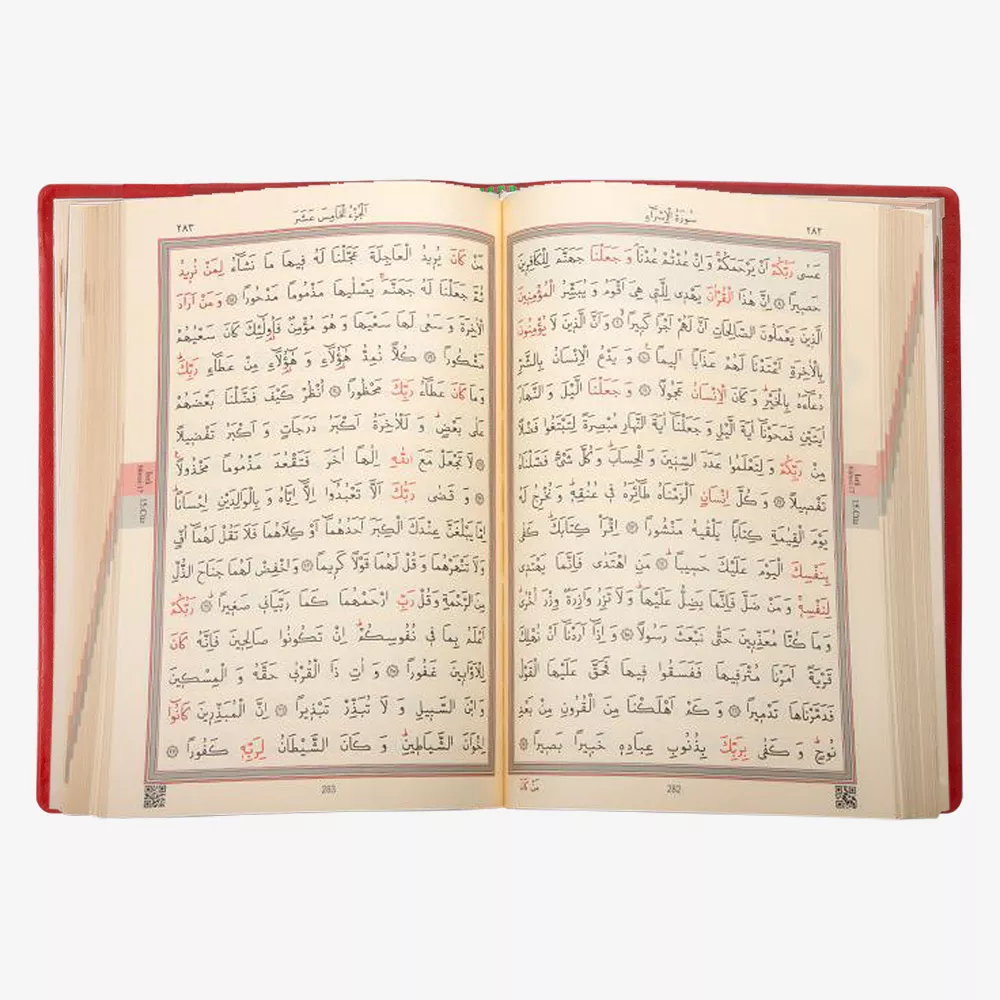 سُورَةُ الْاِسْرَاءِ
٢٨٢
عَسٰى رَبُّكُمْ اَنْ يَرْحَمَكُمْۚ وَاِنْ عُدْتُمْ عُدْنَاۢ وَجَعَلْنَا جَهَنَّمَ لِلْكَافِرِينَ
حَصِيرًا ﴿٨﴾ اِنَّ هٰذَا الْقُرْاٰنَ يَهْدِى لِلَّتِى هِىَ اَقْوَمُ وَيُبَشِّرُ الْمُؤْمِنِينَ
الَّذِينَ يَعْمَلُونَ الصَّالِحَاتِ اَنَّ لَهُمْ اَجْرًا كَبِيرًاۙ ﴿٩﴾ وَاَنَّ الَّذِينَ لَا يُؤْمِنُونَ
بِالْاٰخِرَةِ اَعْتَدْنَا لَهُمْ عَذَابًا اَلِيمًا۟ ﴿١٠﴾ وَيَدْعُ الْاِنْسَانُ بِالشَّرِّ
دُعَٓاءَهُ بِالْخَيْرِۜ وَكَانَ الْاِنْسَانُ عَجُولًا ﴿١١﴾ وَجَعَلْنَا الَّيْلَ وَالنَّهَارَ
اٰيَتَيْنِ فَمَحَوْنَٓا اٰيَةَ الَّيْلِ وَجَعَلْنَٓا اٰيَةَ النَّهَارِ مُبْصِرَةً لِتَبْتَغُوا فَضْلًا
مِنْ رَبِّكُمْ وَلِتَعْلَمُوا عَدَدَ السِّنِينَ وَالْحِسَابَۜ وَكُلَّ شَىْءٍ فَصَّلْنَاهُ
تَفْصِيلًا ﴿١٢﴾ وَكُلَّ اِنْسَانٍ اَلْزَمْنَاهُ طَٓائِرَهُ فِى عُنُقِهِۜ وَنُخْرِجُ لَهُ
يَوْمَ الْقِيٰمَةِ كِتَابًا يَلْقٰيهُ مَنْشُورًا ﴿١٣﴾ اِقْرَأْ كِتَابَكَۜ كَفٰى
بِنَفْسِكَ الْيَوْمَ عَلَيْكَ حَسِيبًاۜ ﴿١٤﴾ مَنِ اهْتَدٰى فَاِنَّمَا يَهْتَدِى
لِنَفْسِهِۚ وَمَنْ ضَلَّ فَاِنَّمَا يَضِلُّ عَلَيْهَاۜ وَلَا تَزِرُ وَازِرَةٌ وِزْرَ اُخْرٰىۜ
وَمَا كُنَّا مُعَذِّبِينَ حَتّٰى نَبْعَثَ رَسُولًا ﴿١٥﴾ وَاِذَٓا اَرَدْنَٓا اَنْ نُهْلِكَ
قَرْيَةً اَمَرْنَا مُتْرَفِيهَا فَفَسَقُوا فِيهَا فَحَقَّ عَلَيْهَا الْقَوْلُ
فَدَمَّرْنَاهَا تَدْمِيرًا ﴿١٦﴾ وَكَمْ اَهْلَكْنَا مِنَ الْقُرُونِ مِنْ بَعْدِ
نُوحٍۜ وَكَفٰى بِرَبِّكَ بِذُنُوبِ عِبَادِهِ خَبِيرًا بَصِيرًا ﴿١٧﴾
282
مَنْ كَانَ
15.Cüz
اَلْجُزْءُ الْخَامِسَ عَشَرَ
٢٨٣
مَنْ كَانَ يُرِيدُ الْعَاجِلَةَ عَجَّلْنَا لَهُ فِيهَا مَا نَشَٓاءُ لِمَنْ نُرِيدُ
ثُمَّ جَعَلْنَا لَهُ جَهَنَّمَۚ يَصْلٰيهَا مَذْمُومًا مَدْحُورًا ﴿١٨﴾ وَمَنْ اَرَادَ
الْاٰخِرَةَ وَسَعٰى لَهَا سَعْيَهَا وَهُوَ مُؤْمِنٌ فَاُو۬لٰٓئِكَ كَانَ سَعْيُهُمْ
مَشْكُورًا ﴿١٩﴾ كُلًّا نُمِدُّ هٰٓؤُ۬لَٓاءِ وَهٰٓؤُ۬لَٓاءِ مِنْ عَطَٓاءِ رَبِّكَۜ
وَمَا كَانَ عَطَٓاءُ رَبِّكَ مَحْظُورًا ﴿٢٠﴾ اُنْظُرْ كَيْفَ فَضَّلْنَا بَعْضَهُمْ
عَلٰى بَعْضٍۜ وَلَلْاٰخِرَةُ اَكْبَرُ دَرَجَاتٍ وَاَكْبَرُ تَفْضِيلًا
﴿٢١﴾ لَا تَجْعَلْ مَعَ اللّٰهِ اِلٰهًا اٰخَرَ فَتَقْعُدَ مَذْمُومًا مَخْذُولًا۟
﴿٢٢﴾ وَقَضٰى رَبُّكَ اَلَّا تَعْبُدُٓوا اِلَّٓا اِيَّاهُ وَبِالْوَالِدَيْنِ اِحْسَانًاۜ
اِمَّا يَبْلُغَنَّ عِنْدَكَ الْكِبَرَ اَحَدُهُمَٓا اَوْ كِلَاهُمَا فَلَا تَقُلْ لَهُمَٓا اُفٍّ
وَلَا تَنْهَرْهُمَا وَقُلْ لَهُمَا قَوْلًا كَرِيمًا ﴿٢٣﴾ وَاخْفِضْ لَهُمَا جَنَاحَ الذُّلِّ
مِنَ الرَّحْمَةِ وَقُلْ رَبِّ ارْحَمْهُمَا كَمَا رَبَّيَانِى صَغِيرًاۜ ﴿٢٤﴾ رَبُّكُمْ
اَعْلَمُ بِمَا فِى نُفُوسِكُمْۜ اِنْ تَكُونُوا صَالِحِينَ فَاِنَّهُ كَانَ
لِلْاَوَّابِينَ غَفُورًا ﴿٢٥﴾ وَاٰتِ ذَا الْقُرْبٰى حَقَّهُ وَالْمِسْكِينَ
وَابْنَ السَّبِيلِ وَلَا تُبَذِّرْ تَبْذِيرًا ﴿٢٦﴾ اِنَّ الْمُبَذِّرِينَ كَانُٓوا
اِخْوَانَ الشَّيَاطِينِۜ وَكَانَ الشَّيْطَانُ لِرَبِّهِ كَفُورًا ﴿٢٧﴾
283
15.Cüz